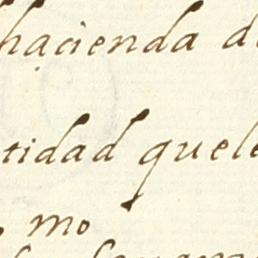 hacienda d
tidad quele
mo